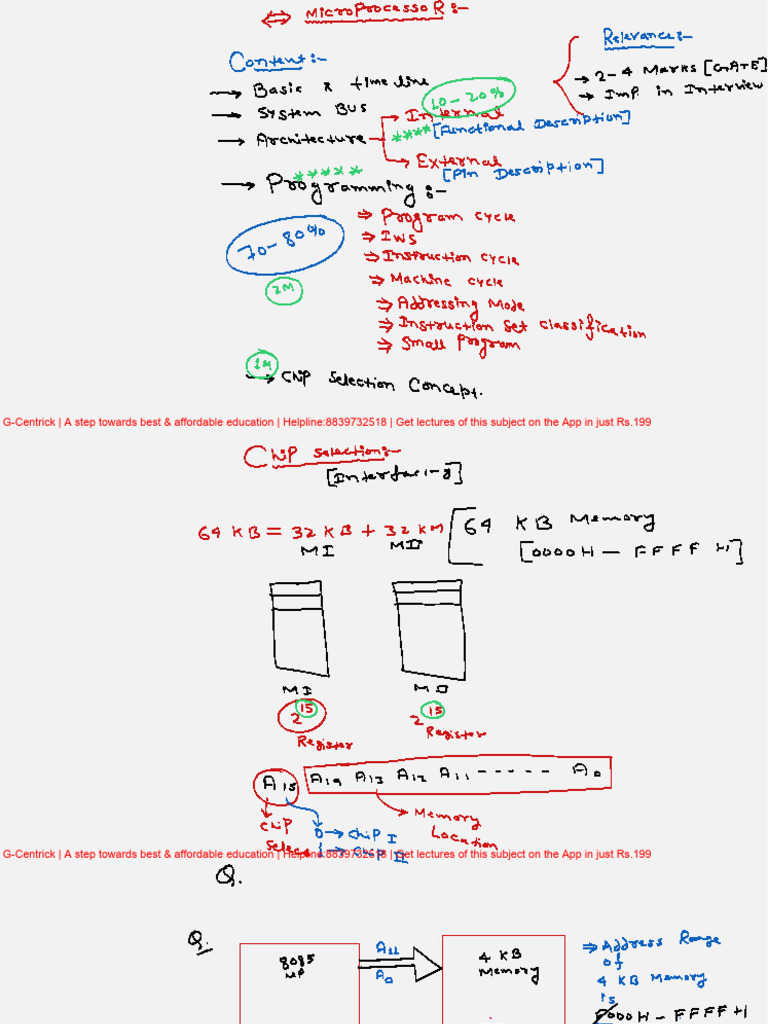 ⇔ MicroProcessoR :-
Content:-
Relevance:-
→ 2-4 Marks [GATE]
→ Imp in Interview
→ Basic & timeline
→ System BUS
10-20%
→ Architecture → Internal
**** [Functional Description]
→ External
[Pin Description]
*****
→ Programming :-
70-80%
2M
⇒ Program cycle
⇒ IWS
⇒ Instruction cycle
⇒ Machine cycle
⇒ Addressing Mode
⇒ Instruction Set classification
⇒ Small Program
1M
→ Chip Selection Concept.
G-Centrick | A step towards best & affordable education | Helpline:8839732518 | Get lectures of this subject on the App in just Rs.199
Chip Selection:-
[Interfacing]
64 KB = 32 KB + 32 KM
MI MII
64 KB Memory
[0000H - FFFF H]
MI MII
2^15 2^15
Register Register
A15 A14 A13 A12 A11 ------ A0
chip
Select
0 → chip I
1 → chip II
→ Memory
Location
G-Centrick | A step towards best & affordable education | Helpline:8839732518 | Get lectures of this subject on the App in just Rs.199
Q.
Q.
8085
μP
A11
A0
4 KB
Memory
⇒ Address Range
of
4 KB Memory
is
F000H - FFFF H